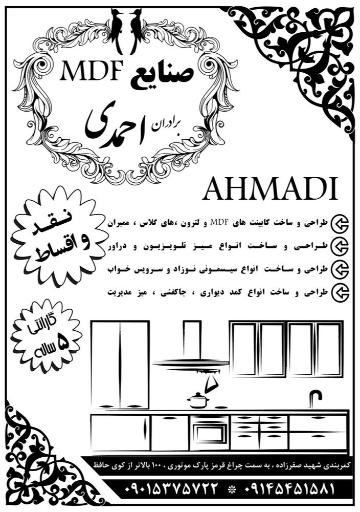 صنایع MDF
برادران احمدی
AHMADI
طراحی و ساخت کابینت های MDF و لترون ،های گلاس ، ممبران
طراحی و ساخت انواع میز تلویزیون و دراور
طراحی و ساخت انواع سیسمونی نوزاد و سرویس خواب
طراحی و ساخت انواع کمد دیواری ، جاکفشی ، میز مدیریت
نقد
و اقساط
گارانتی
۵ ساله
کمربندی شهید صفرزاده ، به سمت چراغ قرمز پارک موتوری ، ۱۰۰ بالاتر از کوی حافظ
۰۹۱۴۵۴۵۱۵۸۱ * ۰۹۰۱۵۳۷۵۷۲۲